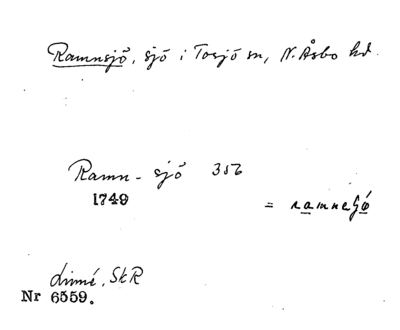 Ramnsjö, sjö i Tosjö sn, N. Åsbo hd
Ramn-sjö 356
1749
= ramneʃö
Linné, SkR
Nr 6559.